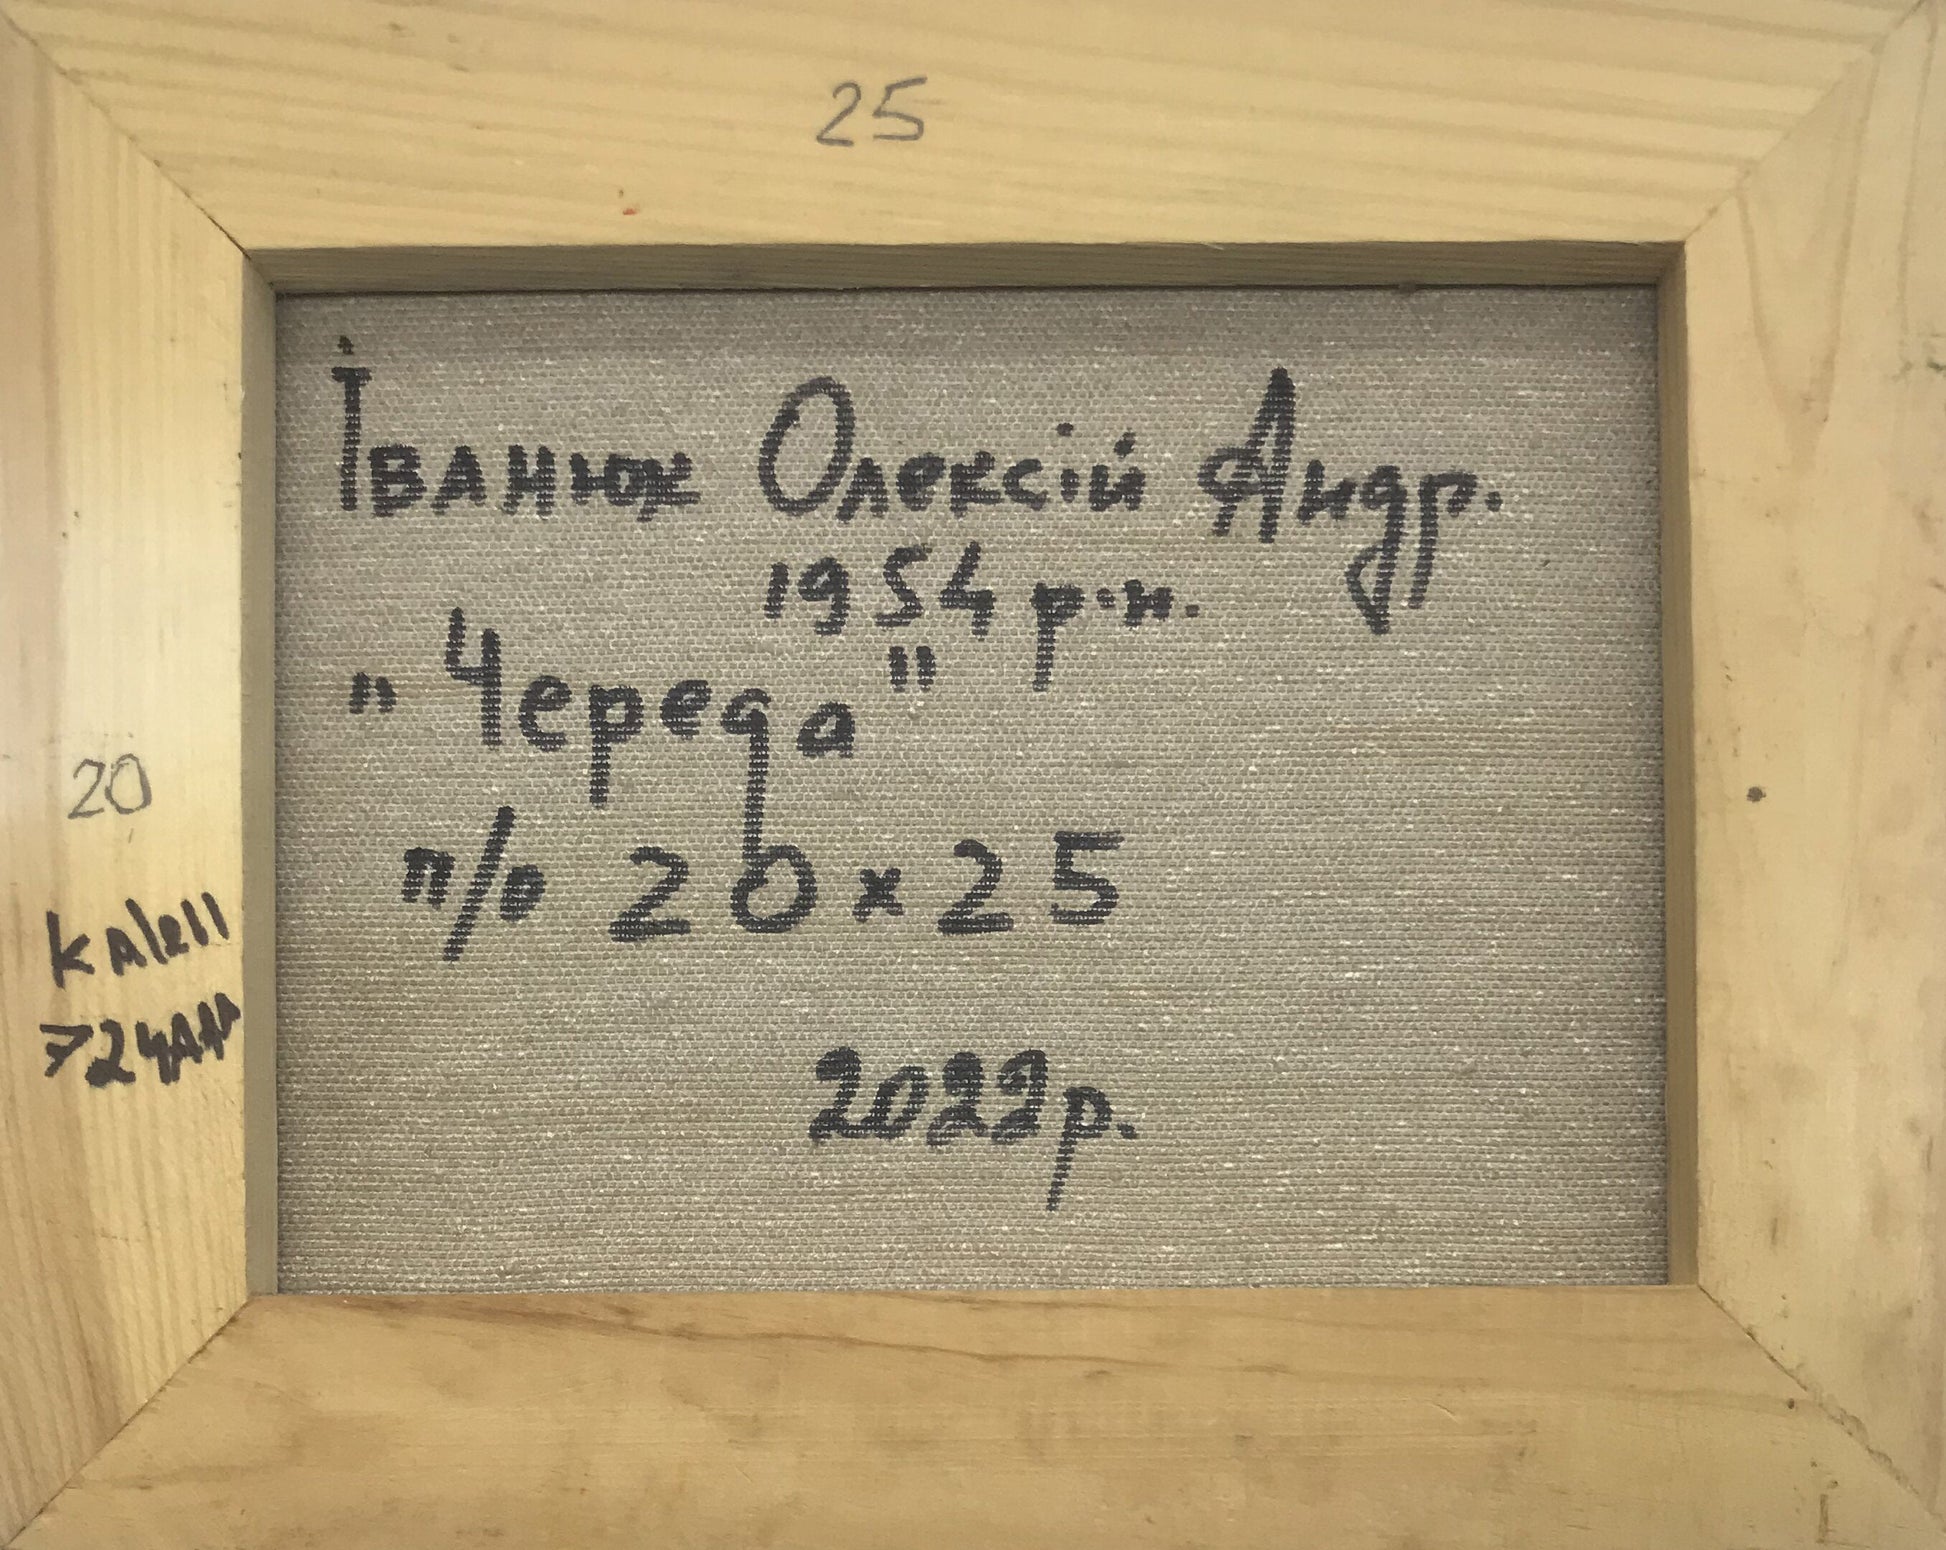 25
Іванюк Олексій Андр.
1954 р.н.
„Череда"
20
п/о 20 x 25
2022р.